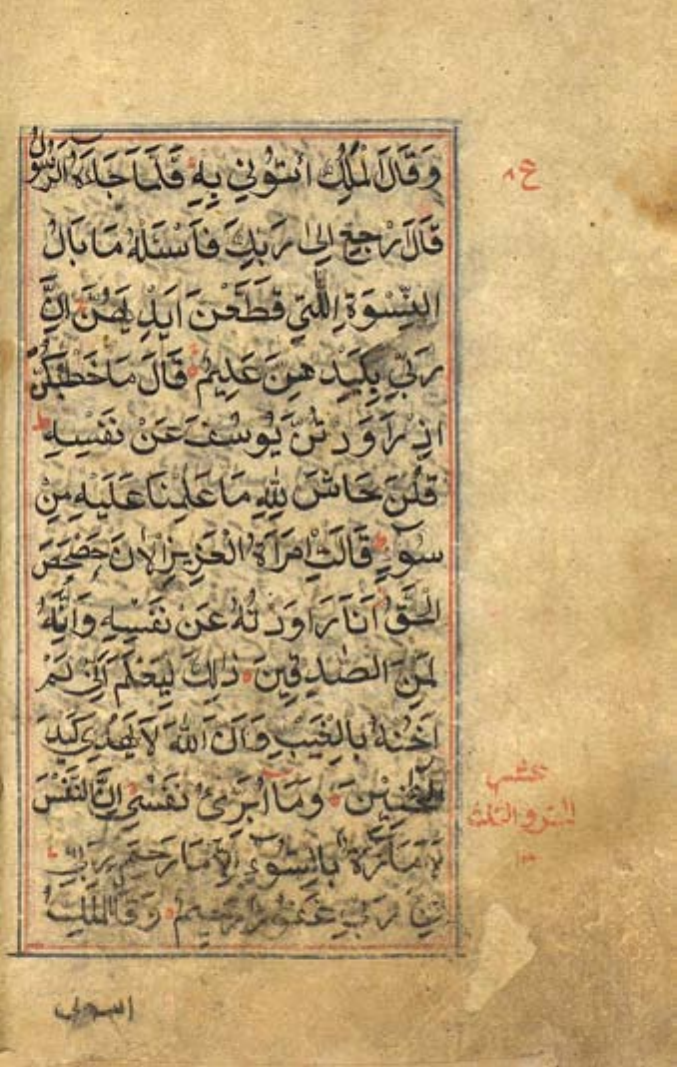 وَقَالَ الْمَلِكُ ائْتُونِي بِهِ فَلَمَّا جَاءَهُ الرَّسُولُ
قَالَ ارْجِعْ اِلٰى رَبِّكَ فَاسْئَلْهُ مَا بَالُ
النِّسْوَةِ اللّٰتِي قَطَّعْنَ اَيْدِيَهُنَّ اِنَّ
رَبِّي بِكَيْدِهِنَّ عَلِيمٌ قَالَ مَا خَطْبُكُنَّ
اِذْ رَاوَدْتُنَّ يُوسُفَ عَنْ نَفْسِهِ
قُلْنَ حَاشَ لِلّٰهِ مَا عَلِمْنَا عَلَيْهِ مِنْ
سُوءٍ قَالَتِ امْرَاَةُ الْعَزِيزِ الْاٰنَ حَصْحَصَ
الْحَقُّ اَنَا رَاوَدْتُهُ عَنْ نَفْسِهِ وَاِنَّهُ
لَمِنَ الصّٰدِقِينَ ذٰلِكَ لِيَعْلَمَ اَنِّي لَمْ
اَخُنْهُ بِالْغَيْبِ وَاَنَّ اللّٰهَ لَا يَهْدِي كَيْدَ
الْخَائِنِينَ وَمَا اُبَرِّئُ نَفْسِي اِنَّ النَّفْسَ
لَاَمَّارَةٌ بِالسُّوءِ اِلَّا مَا رَحِمَ رَبِّي
اِنَّ رَبِّي غَفُورٌ رَحِيمٌ وَقَالَ الْمَلِكُ
ع ٨